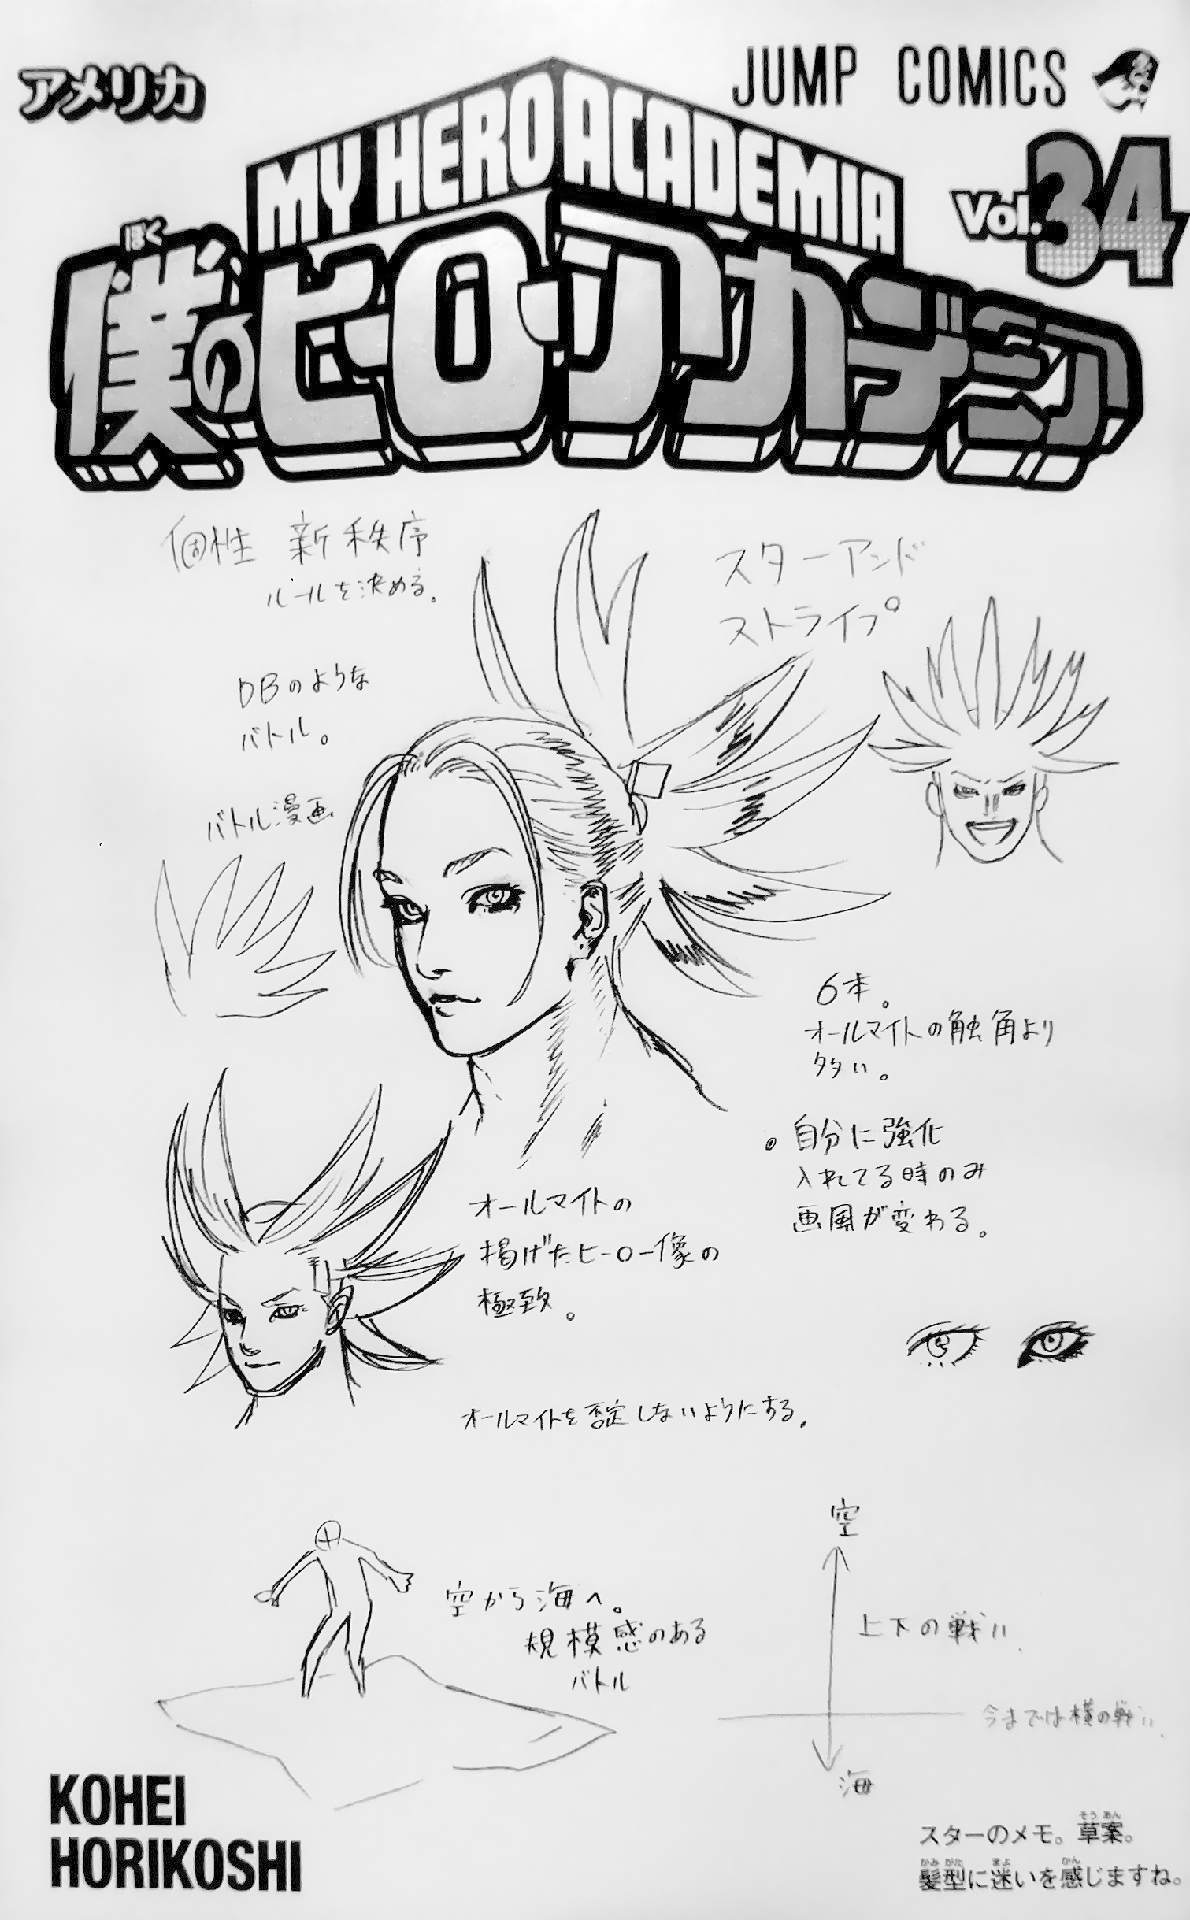 アメリカ
JUMP COMICS
MY HERO ACADEMIA
Vol.34
ぼく
僕のヒーローアカデミア
個性 新秩序
ルールを決める。
スターアンド
ストライプ
DBのような
バトル。
バトル漫画
6本。
オールマイトの触角より
多い。
自分に強化
入れてる時のみ
画風が変わる。
オールマイトの
掲げたヒーロー像の
極致。
オールマイトを否定しないようにする。
空から海へ。
規模感のある
バトル
空
上下の戦い
今までは横の戦い
海
KOHEI
HORIKOSHI
そうあん
スターのメモ。草案。
かみがた まよ かん
髪型に迷いを感じますね。